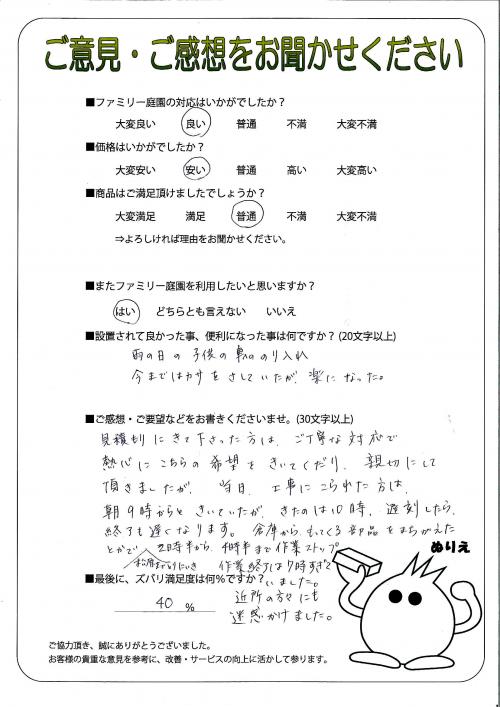 ご意見・ご感想をお聞かせください
■ファミリー庭園の対応はいかがでしたか？
大変良い 良い 普通 不満 大変不満
■価格はいかがでしたか？
大変安い 安い 普通 高い 大変高い
■商品はご満足頂けましたでしょうか？
大変満足 満足 普通 不満 大変不満
⇒よろしければ理由をお聞かせください。
■またファミリー庭園を利用したいと思いますか？
はい どちらとも言えない いいえ
■設置されて良かった事、便利になった事は何ですか？(20文字以上)
雨の日の子供の車ののり入れ
今まではカサをさしていたが、楽になった。
■ご感想・ご要望などをお書きくださいませ。(30文字以上)
見積もりにきて下さった方は、ご丁寧な対応で
熱心にこちらの希望をきいてくだり、親切にして
頂きましたが、当日、工事にこられた方は、
朝9時からときいていたが、きたのは10時、遅刻したら、
終了も遅くなります。倉庫からもってくる部品をまちがえた
とかで 2時半から、4時半まで作業ストップ
作業終了は7時すぎて
いました。
■最後に、ズバリ満足度は何%ですか？
近所の方々にも
40 %
迷惑かけました。
ぬりえ
ご協力頂き、誠にありがとうございました。
お客様の貴重な意見を参考に、改善・サービスの向上に活かして参ります。